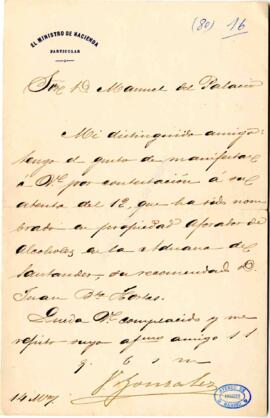 (80) 16
EL MINISTRO DE HACIENDA
PARTICULAR
Sor D. Manuel del Palacio
Mi distinguido amigo:
tengo el gusto de manifestar
á V. por contestación á su
atenta del 12, que ha sido nom
brado en propiedad aforador de
alcoholes, de la Aduana de
Santander, su recomendado D.
Juan Bta
Queda V. complacido y me
repito suyo afmo amigo s s
q b s m
V. Gonzalez